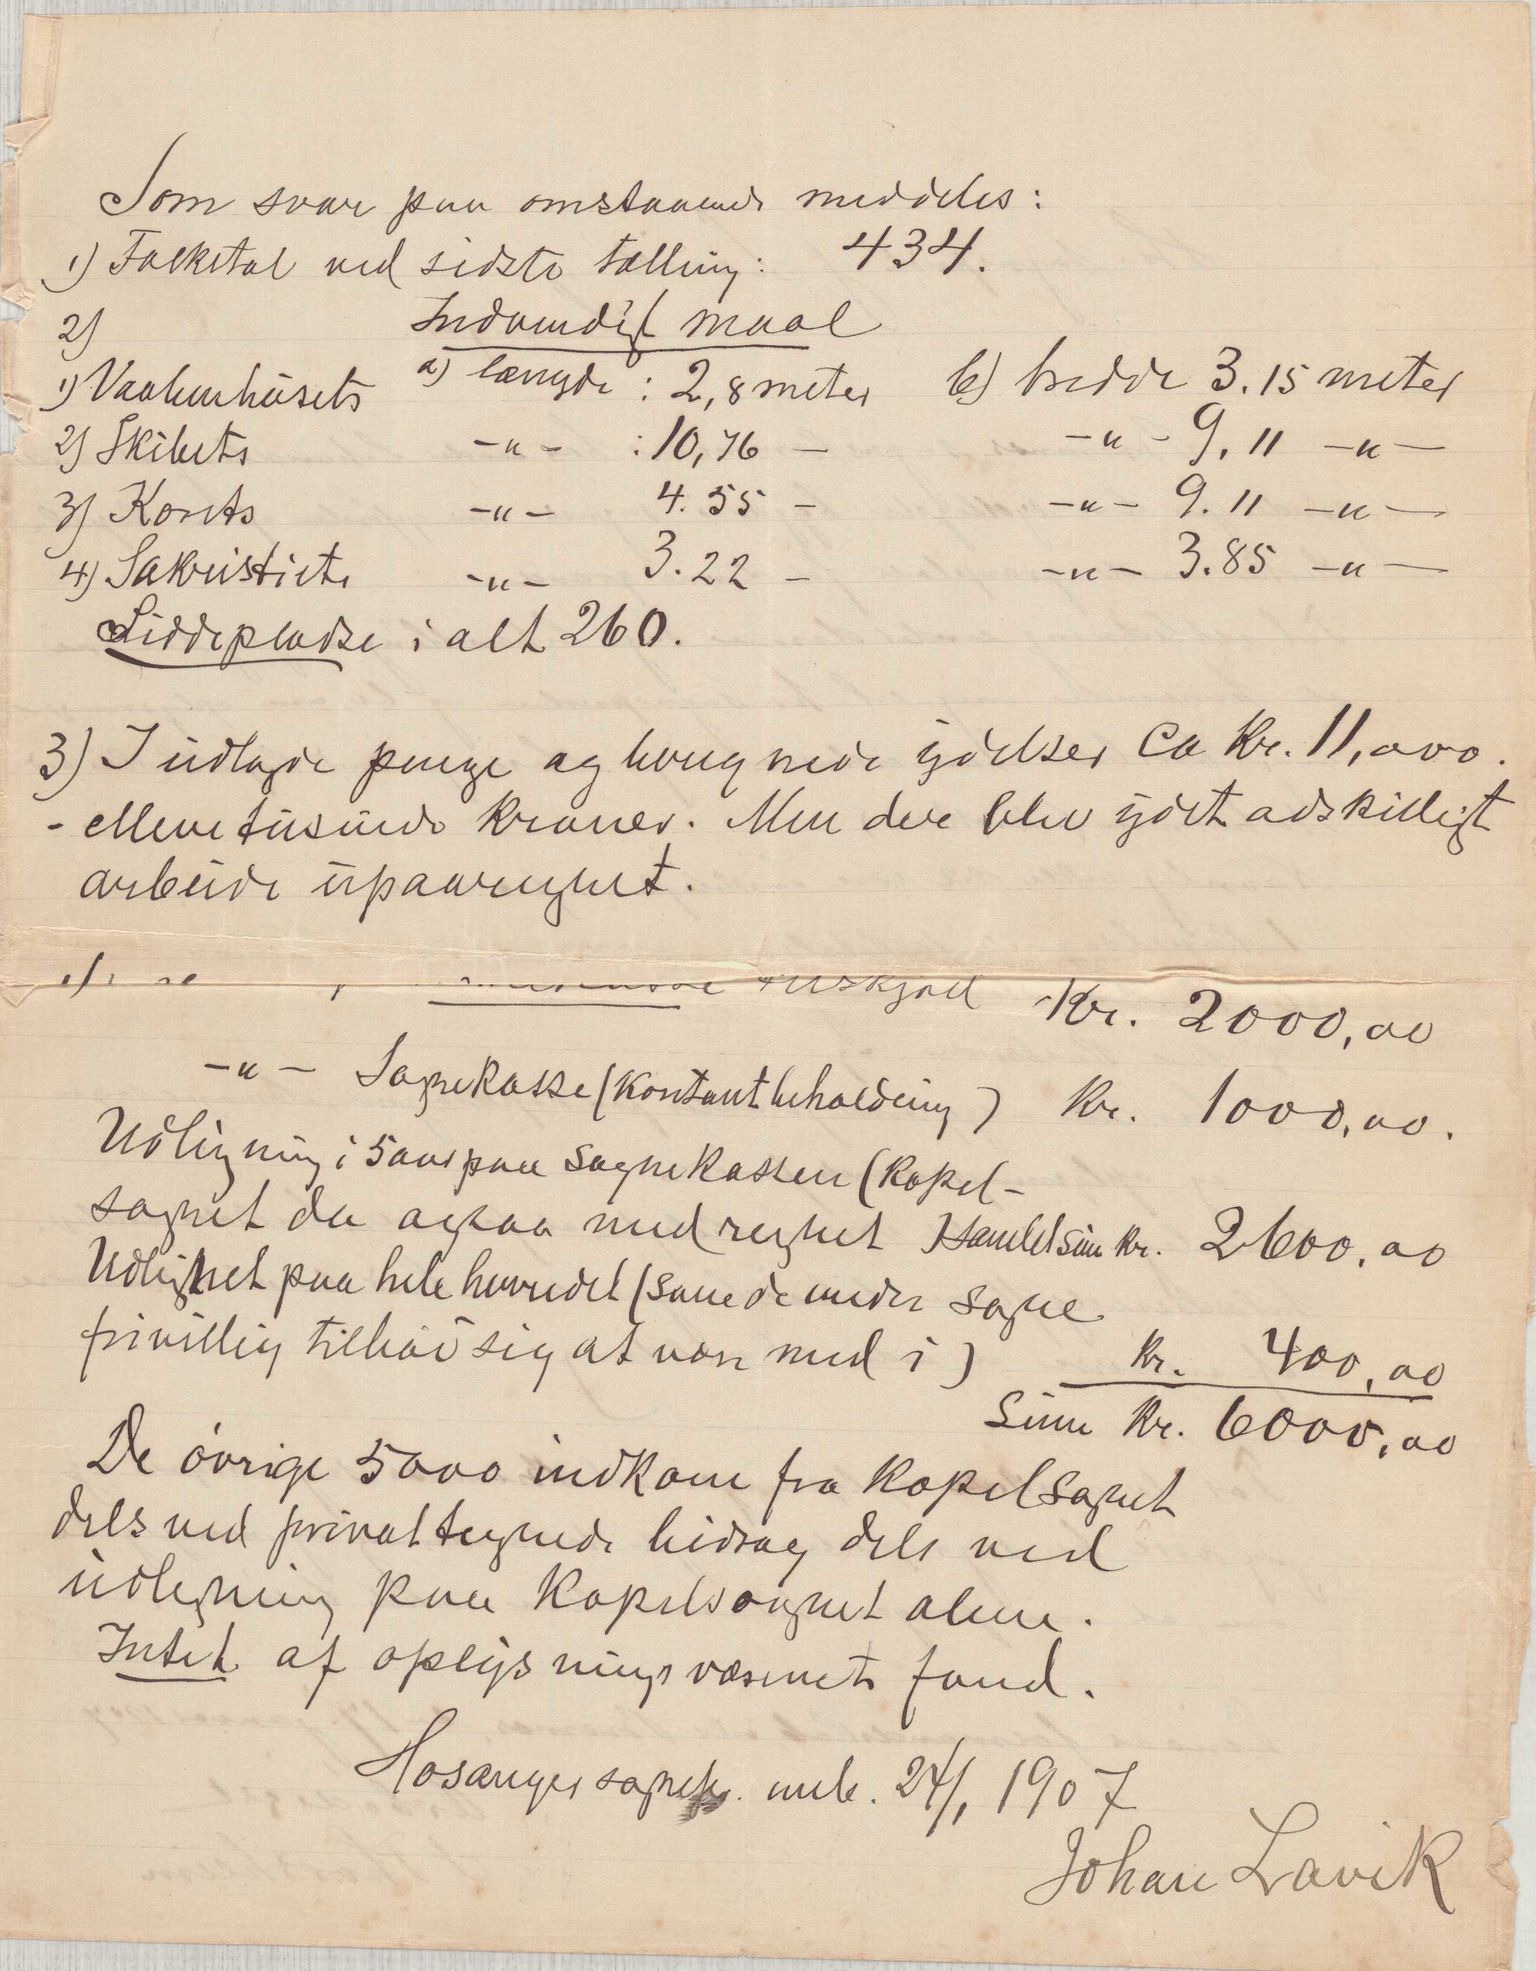 Som svar paa omstaaende meddeles:
1) Folketal ved sidste tælling: 434.
2) Indvendigt maal
1) Vaabenhusets a) længde : 2,8 meter b) bredde 3.15 meter
2) Skibets -"- : 10,76 - -"- 9.11 -"-
3) Korets -"- 4.55 - -"- 9.11 -"-
4) Sakristiets -"- 3.22 - -"- 3.85 -"-
Siddepladse i alt 260.
3) I udlagde penge og beregnede ydelser ca Kr. 11,000.
- elleve tusinde kroner. Men der blev gjort adskilligt
arbeide upaaregnet.
tilskjød Kr. 2000,00
-"- Sognekasse (Kontantbeholdning) Kr. 1000,00.
Udligning i 5 aar paa Sognekassen (Kapel-
sognet da ogsaa medregnet) Samlet sum Kr. 2600,00
Udlignet paa hele herredet (som de andre sogne
frivillig tilbød sig at være med i) Kr. 400,00
Sum Kr. 6000,00
De øvrige 5000 indkom fra Kapelsognet
dels ved privat tegnede bidrag dels ved
udligning paa Kapelsognet alene.
Intet af oplysningsvæsenets fond.
Hosanger sognepr. emb. 24/1 1907
Johan Lavik